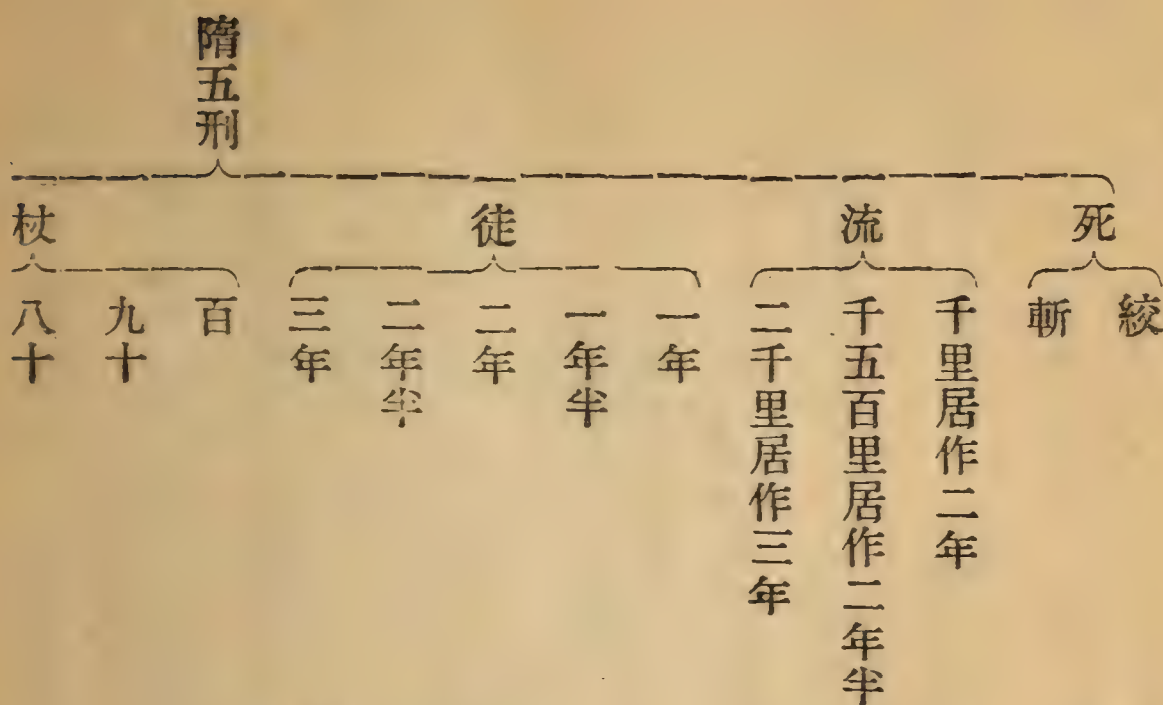 隋五刑
死
絞
斬
流
千里居作二年
千五百里居作二年半
二千里居作三年
徒
一年
一年半
二年
二年半
三年
杖
百
九十
八十